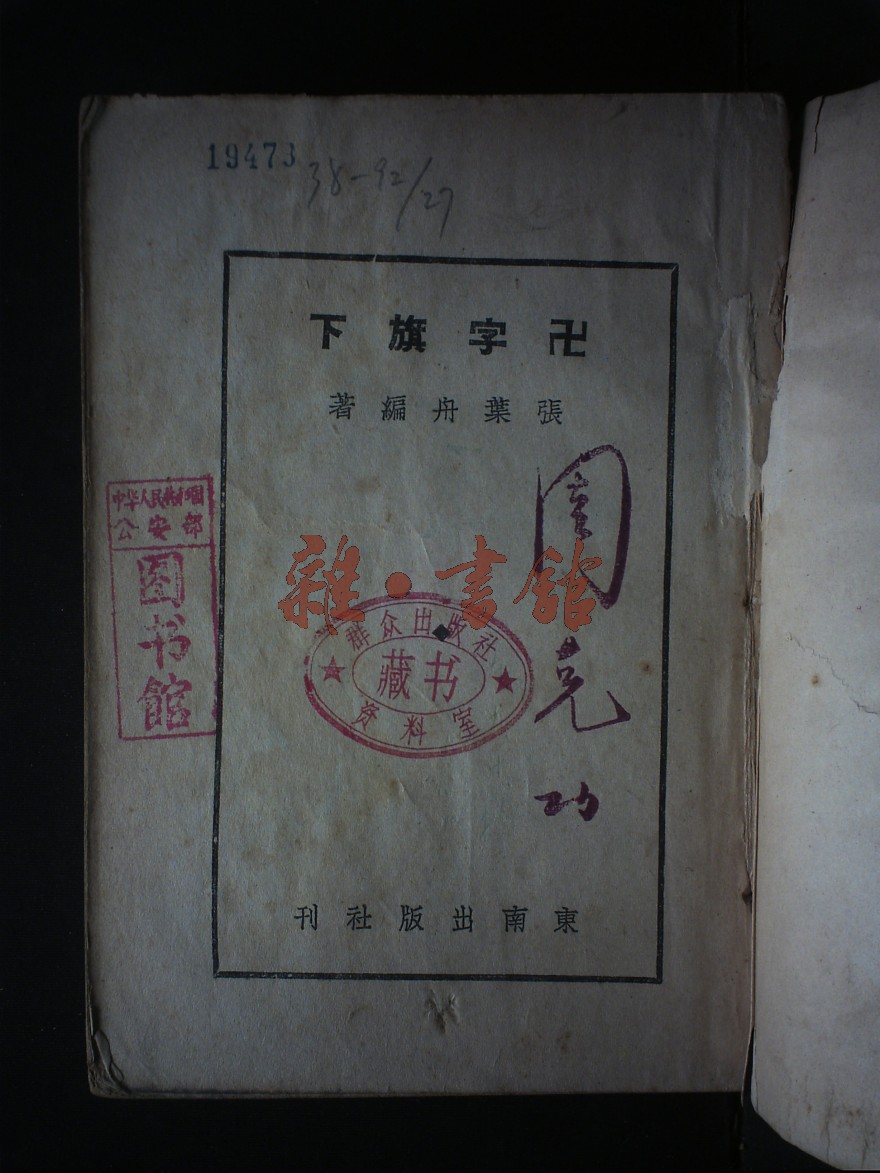 19473
38-92/27
卍字旗下
張葉舟編著
中华人民共和國
公安部
图书馆
雜·書館
群众出版社
藏书
资料室
克
功
東南出版社刊